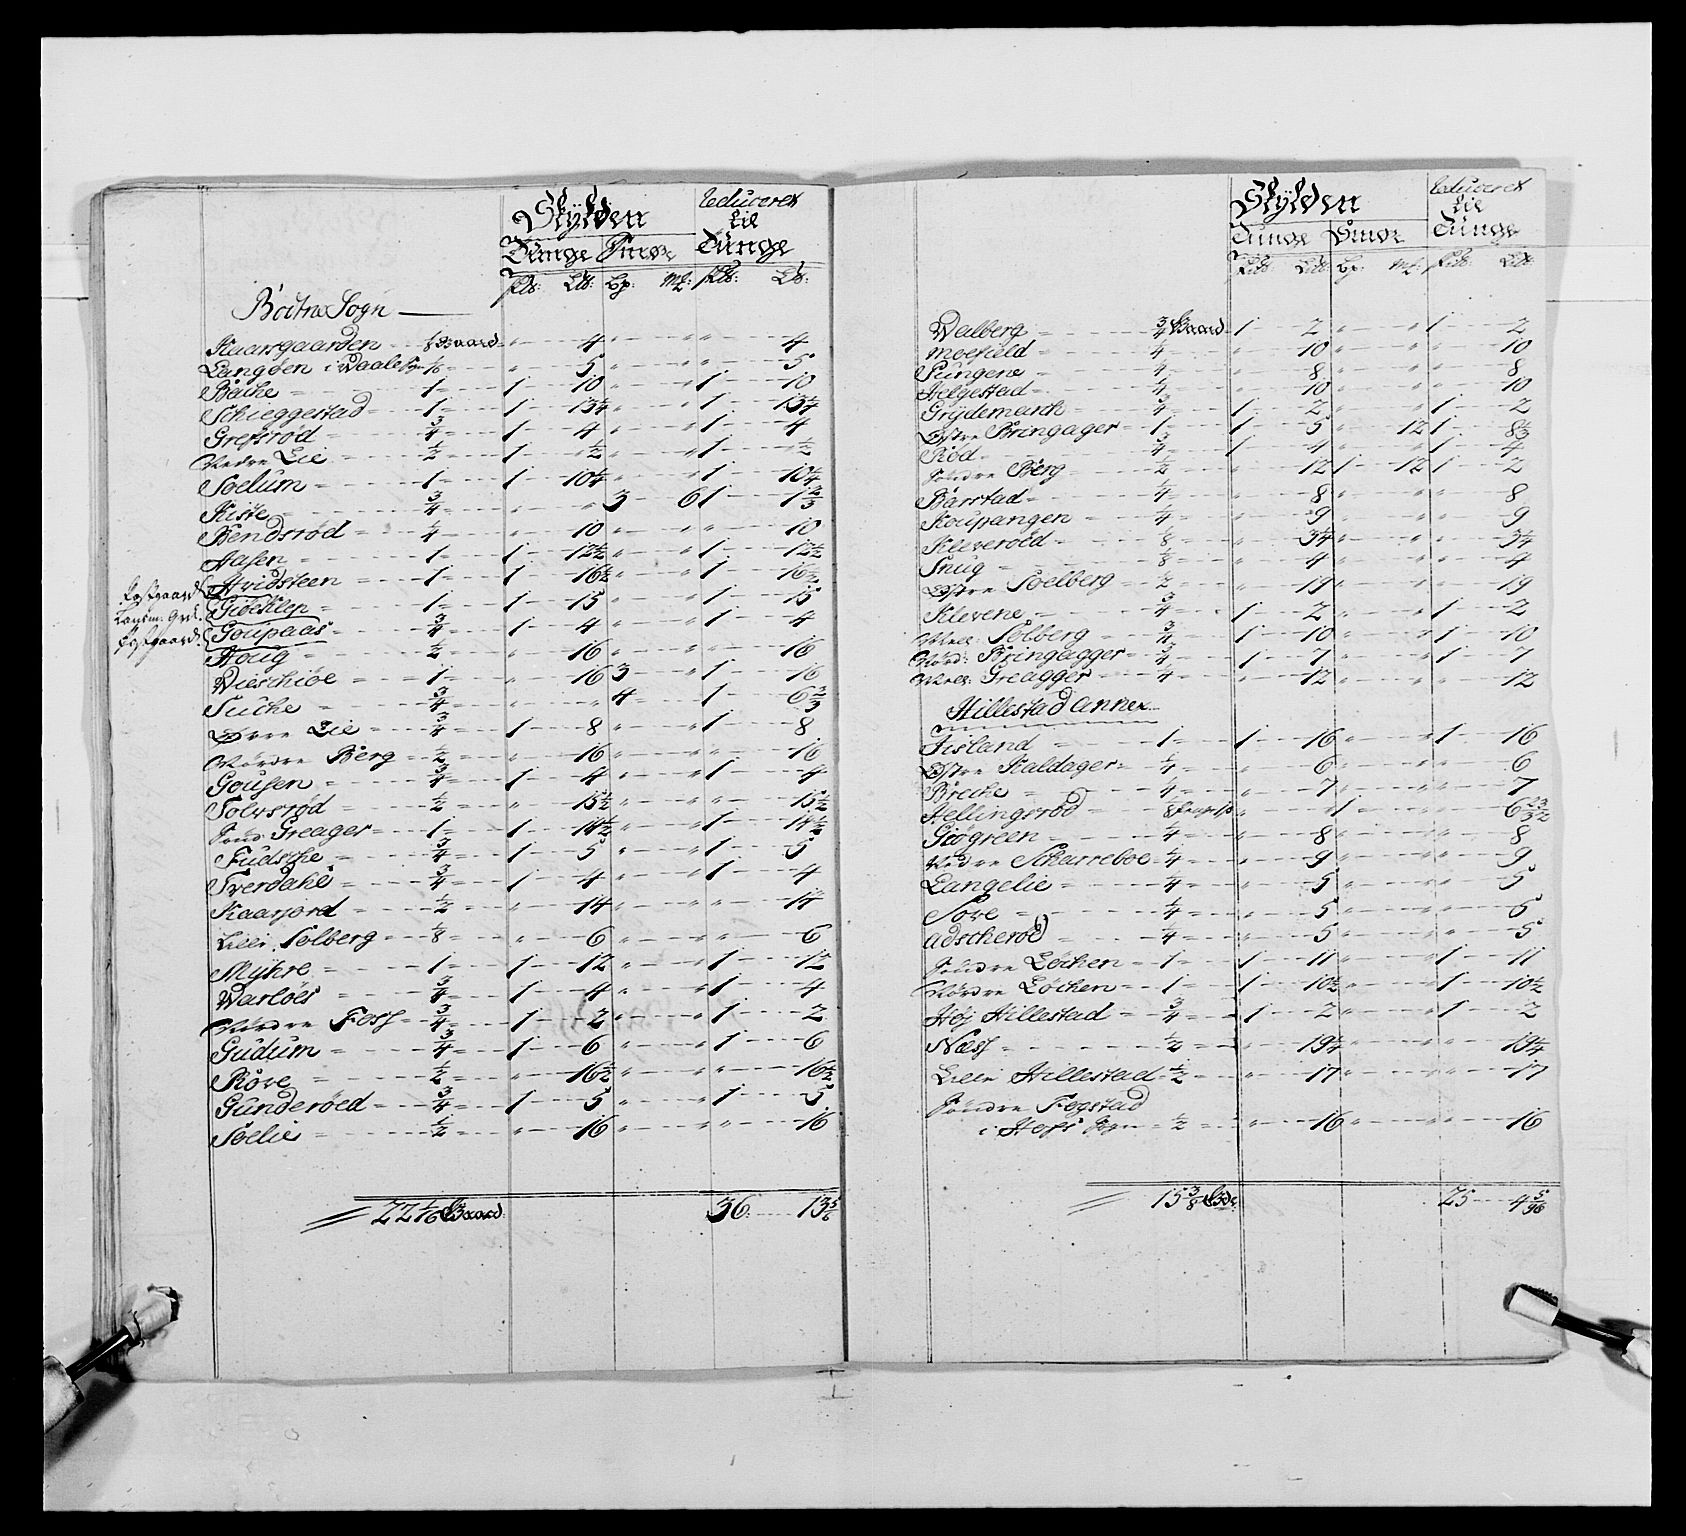 Skylden reduceret
til
Tunge Smør Tunge
Pd: Ld: Bp: Mk: Pd: Ld:
Botne Sogn
Kaarsgaarden 1/8 Gaard " 4 " " " 4
Langøen i Vaale Sogn 1/16 " 5 " " " 5
Bache 1 1 10 " " 1 10
Schieggestad 1 1 13 1/4 " " 1 13 1/4
Grefsrød 3/4 1 4 " " 1 4
Nedre Lie 1/2 1 1/2 " " 1 1/2
Soelum 1 1 10 1/4 " " 1 10 1/4
Kiste 3/4 " " 3 6 1 1 2/3
Bendsrød 1/4 " 10 " " " 10
Aasen 1 1 12 1/2 " " 1 12 1/2
Hvidsteen 1 1 16 1/2 " " 1 16 1/2
Giøeklep 1 1 15 " " 1 15
Goupaas 3/4 1 4 " " 1 4
Houg 1/2 " 16 " " " 16
Vieschiøe 1 " 16 3 " 1 16
Suche 3/4 " " 4 " 1 6 2/3
Øvre Lie 3/4 1 8 " " 1 8
Nordre Berg 1/2 " 16 " " " 16
Gousen 3/4 1 4 " " 1 4
Tolvsrød 1/2 " 15 1/2 " " " 15 1/2
Sønd: Greager 1 1 14 1/2 " " 1 14 1/2
Fudsche 3/4 1 5 " " 1 5
Tverdahl 3/4 1 4 " " 1 4
Kaarjord 1/2 " 14 " " " 14
Lille Solberg 1/8 " 6 " " " 6
Myhre 1 1 12 " " 1 12
Varløes 3/4 1 4 " " 1 4
Nordre Foss 3/4 1 2 " " 1 2
Gudum 3/4 1 6 " " 1 6
Røre 1/2 " 16 1/2 " " " 16 1/2
Gunderøed 3/4 1 5 " " 1 5
Soelie 1/2 " 16 " " " 16
22 1/16 Gaard 36 13 5/6
Skylden reduceret
til
Tunge Smør Tunge
Pd: Ld: Bp: Mk: Pd: Ld:
Valberg 3/4 Gaard 1 2 " " 1 2
Moefield 1/4 " 10 " " " 10
Pungene 1/4 " 8 " " " 8
Helgestad 1/4 " 10 " " " 10
Grydemarch 3/4 1 2 " " 1 2
Østre Bringager 1 1 5 " 12 1 8 1/3
Rød 3/4 1 4 " " 1 4
Søndre Berg 1/2 " 12 1 12 1 2
Barstad 1/4 " 8 " " " 8
Koupangen 1/4 " 9 " " " 9
Kleverøed 1/8 " 3 1/4 " " " 3 1/4
Snug 1/8 " 4 " " " 4
Østre Soelberg 1/2 " 19 " " " 19
Klevene 3/4 1 2 " " 1 2
Vest: Solberg 3/4 1 10 " " 1 10
Nord: Bringagger 3/4 1 7 " " 1 7
Vest: Greagger 1/4 " 12 " " " 12
Hillestad annex
Iisland 1 1 16 " " 1 16
Østre Kaldager 1/4 " 6 " " " 6
Breche 1/4 " 7 " " " 7
Hellingsrød " " 1 6 23/32
Giøgreen 1/4 " 8 " " " 8
Nedre Scharreboe 1/4 " 9 " " " 9
Langelie 1/4 " 5 " " " 5
Sore 1/4 " 5 " " " 5
Adscherød 1/4 " 5 " " " 5
Søndre Løchen 1 1 11 " " 1 11
Nordre Løchen 1 1 10 1/2 " " 1 10 1/2
Høj Hillestad 3/4 1 2 " " 1 2
Næss 1/2 " 19 1/4 " " " 19 1/4
Lille Hillestad 1/2 " 17 " " " 17
Søndre Fogstad
i Hofs Sogn 1/2 " 16 " " " 16
15 3/8 Gde 25 4 5/96